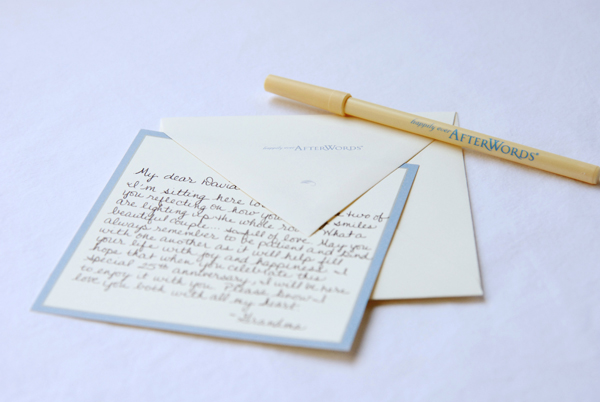 happily ever AFTERWORDS
AFTERWORDS
My dear Davia
I'm sitting here lo
you reflecting on how you two of
are lighting up the whole ro smiles
beautiful couple... so full of love. May you What a
always remember to be patient and kind
with one another as it will help fill
your life with joy and happiness. I
hope that when you celebrate this
special 25th anniversary, I will be here
to enjoy it with you. Please know I
love you both with all my heart
-Grandma